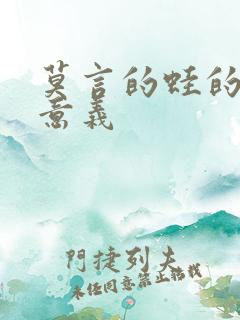 莫言的蛙的
意義
門捷列夫
未经同意禁止转载